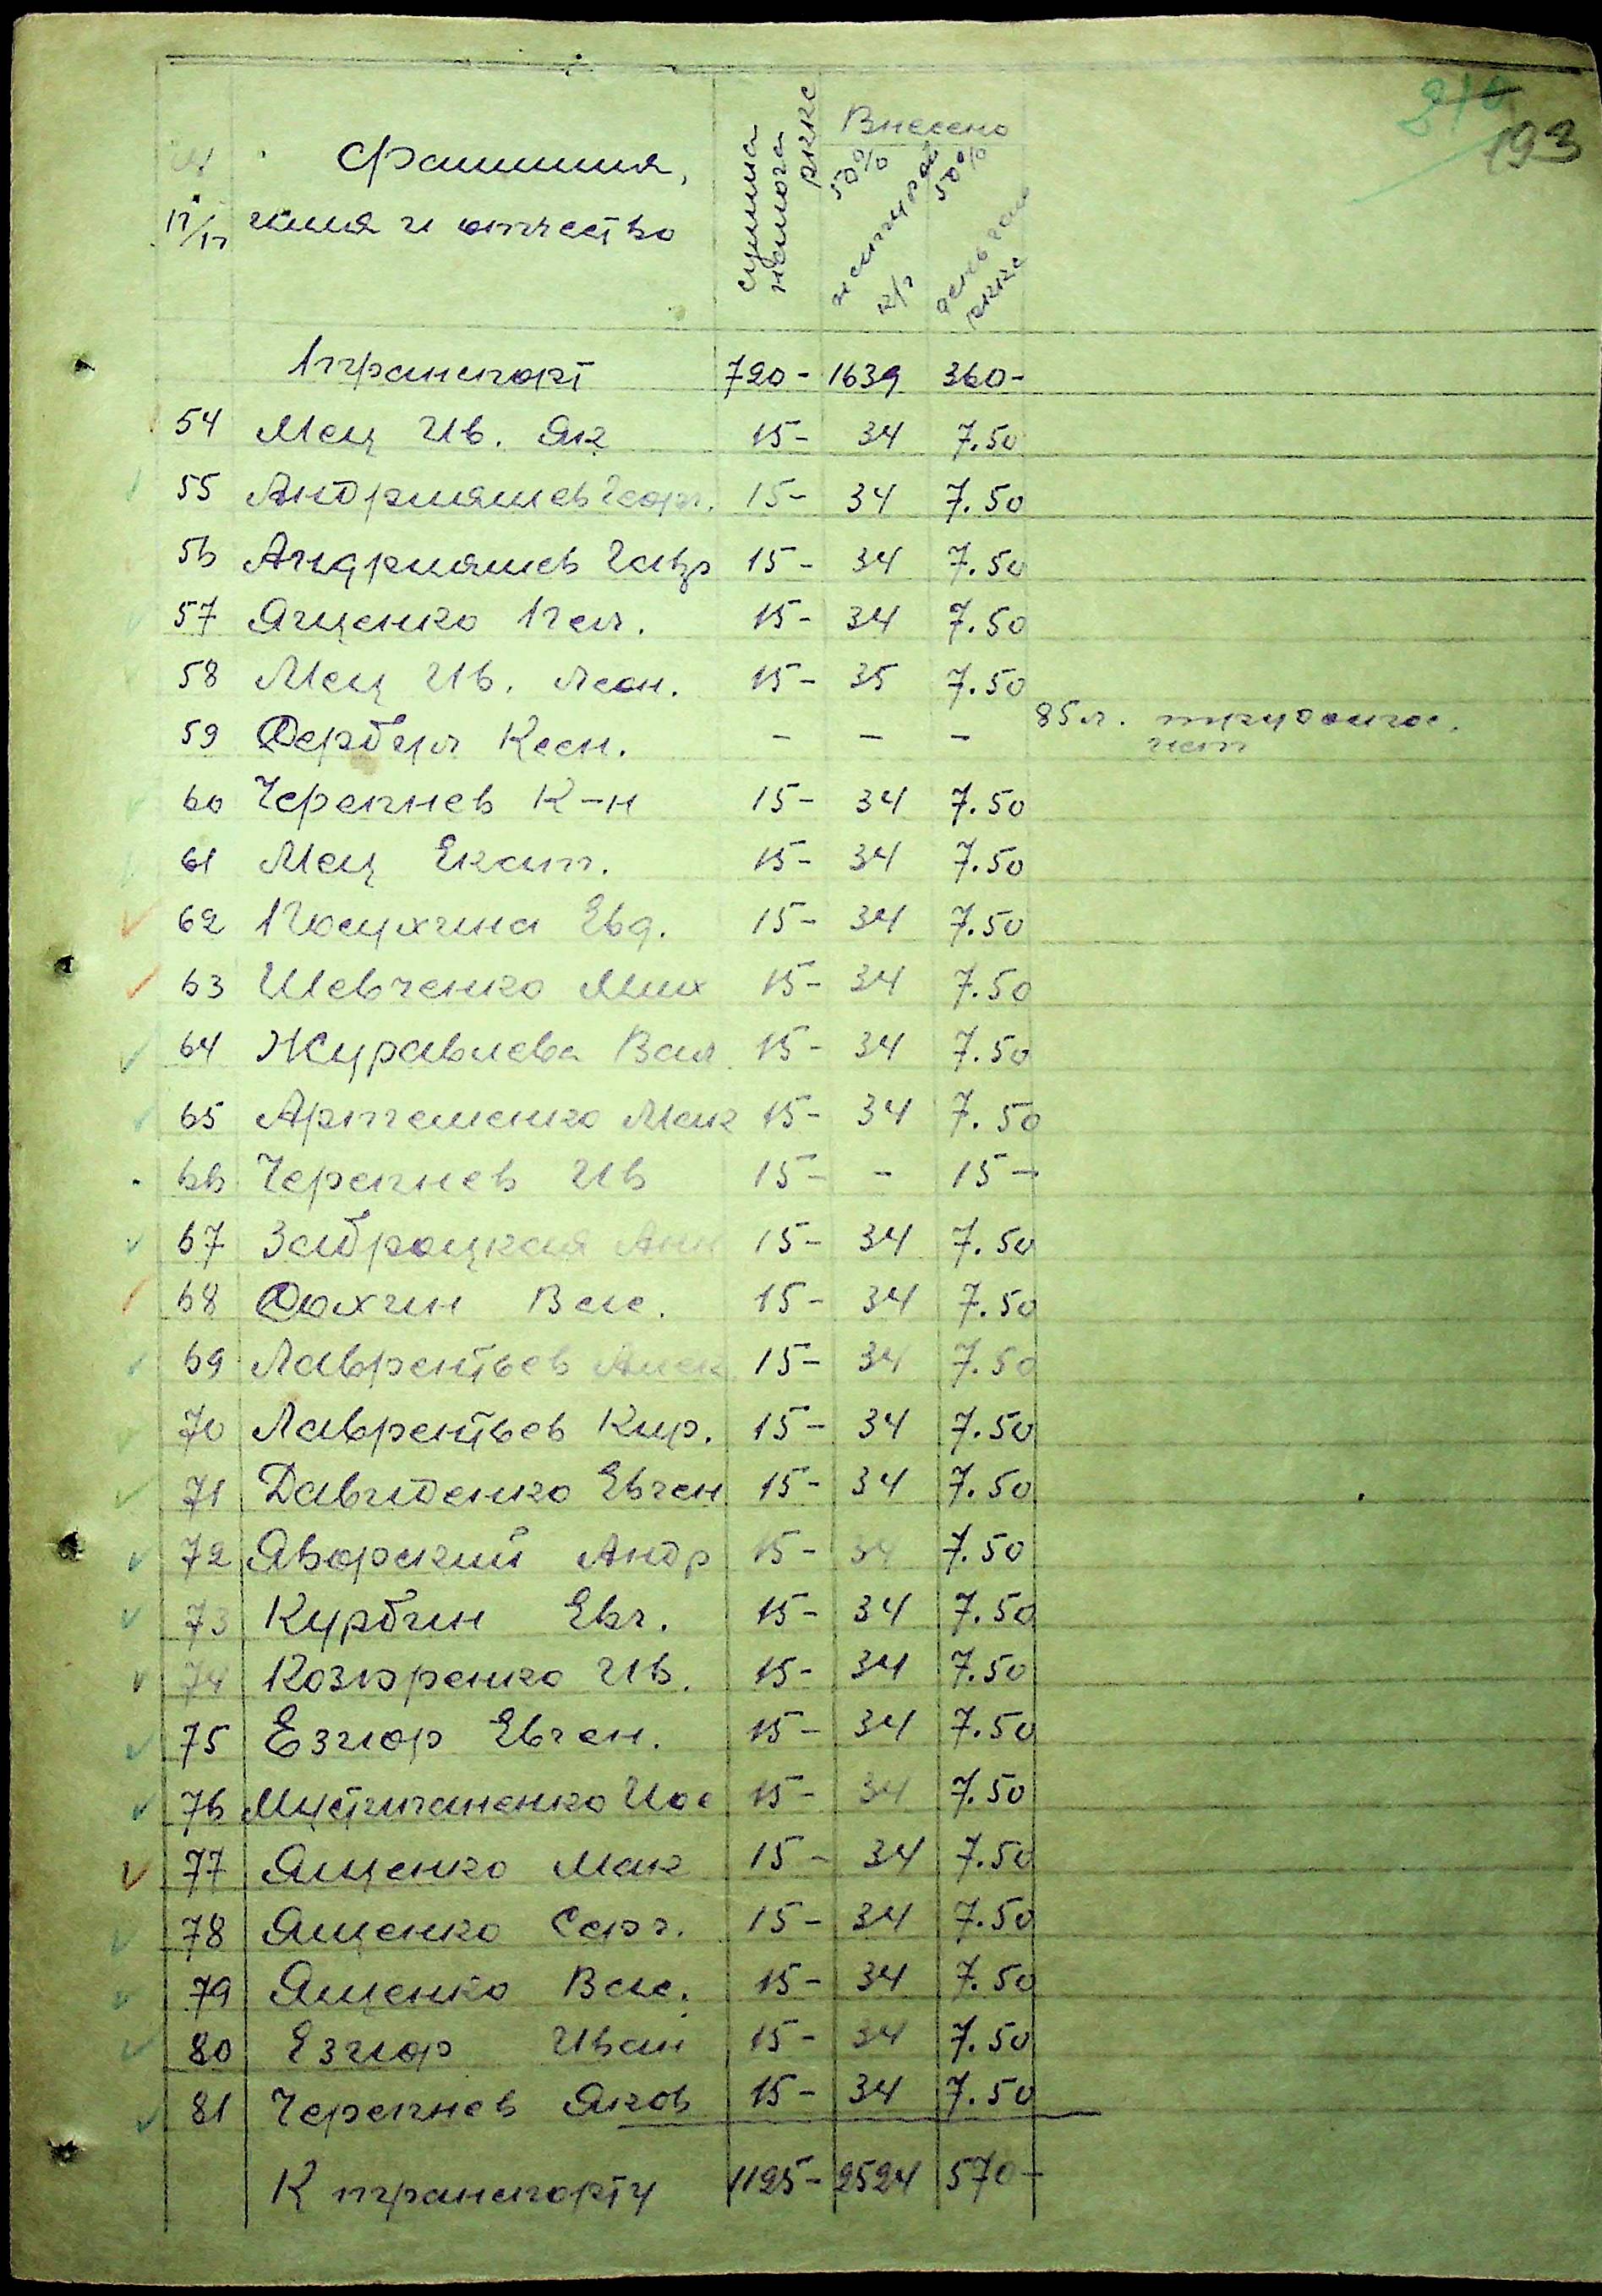 210
193
№ п/п Фамилия, имя и отчество сумма налога РККС Внесено 50% натурой к/г 50% деньгами РККС
Транспорт 720- 1639 360-
54 Мец Ив. Як 15- 34 7.50
55 Андрияшев Георг. 15- 34 7.50
56 Андрияшев Гавр 15- 34 7.50
57 Ященко Пел. 15- 34 7.50
58 Мец Ив. Леон. 15- 35 7.50
59 Дербул Ксен. - - - 85 л. трудоспос.
нет
60 Черепнев К-н 15- 34 7.50
61 Мец Екат. 15- 34 7.50
62 Косухина Евд. 15- 34 7.50
63 Шевченко Мих 15- 34 7.50
64 Журавлева Вал 15- 34 7.50
65 Артеменко Мак 15- 34 7.50
66 Черепнев Ив 15- - 15-
67 Заброцкая Анн 15- 34 7.50
68 Дохин Вас. 15- 34 7.50
69 Лаврентьев Алек 15- 34 7.50
70 Лаврентьев Кир. 15- 34 7.50
71 Давиденко Евген 15- 34 7.50
72 Яворский Андр 15- 34 7.50
73 Курбин Евг. 15- 34 7.50
74 Козюренко Ив. 15- 34 7.50
75 Езиор Евген. 15- 34 7.50
76 Иос 15- 34 7.50
77 Ященко Мак 15- 34 7.50
78 Ященко Серг. 15- 34 7.50
79 Ященко Вас. 15- 34 7.50
80 Езиор Иван 15- 34 7.50
81 Черепнев Яков 15- 34 7.50
К транспорту 1125- 2524 570-